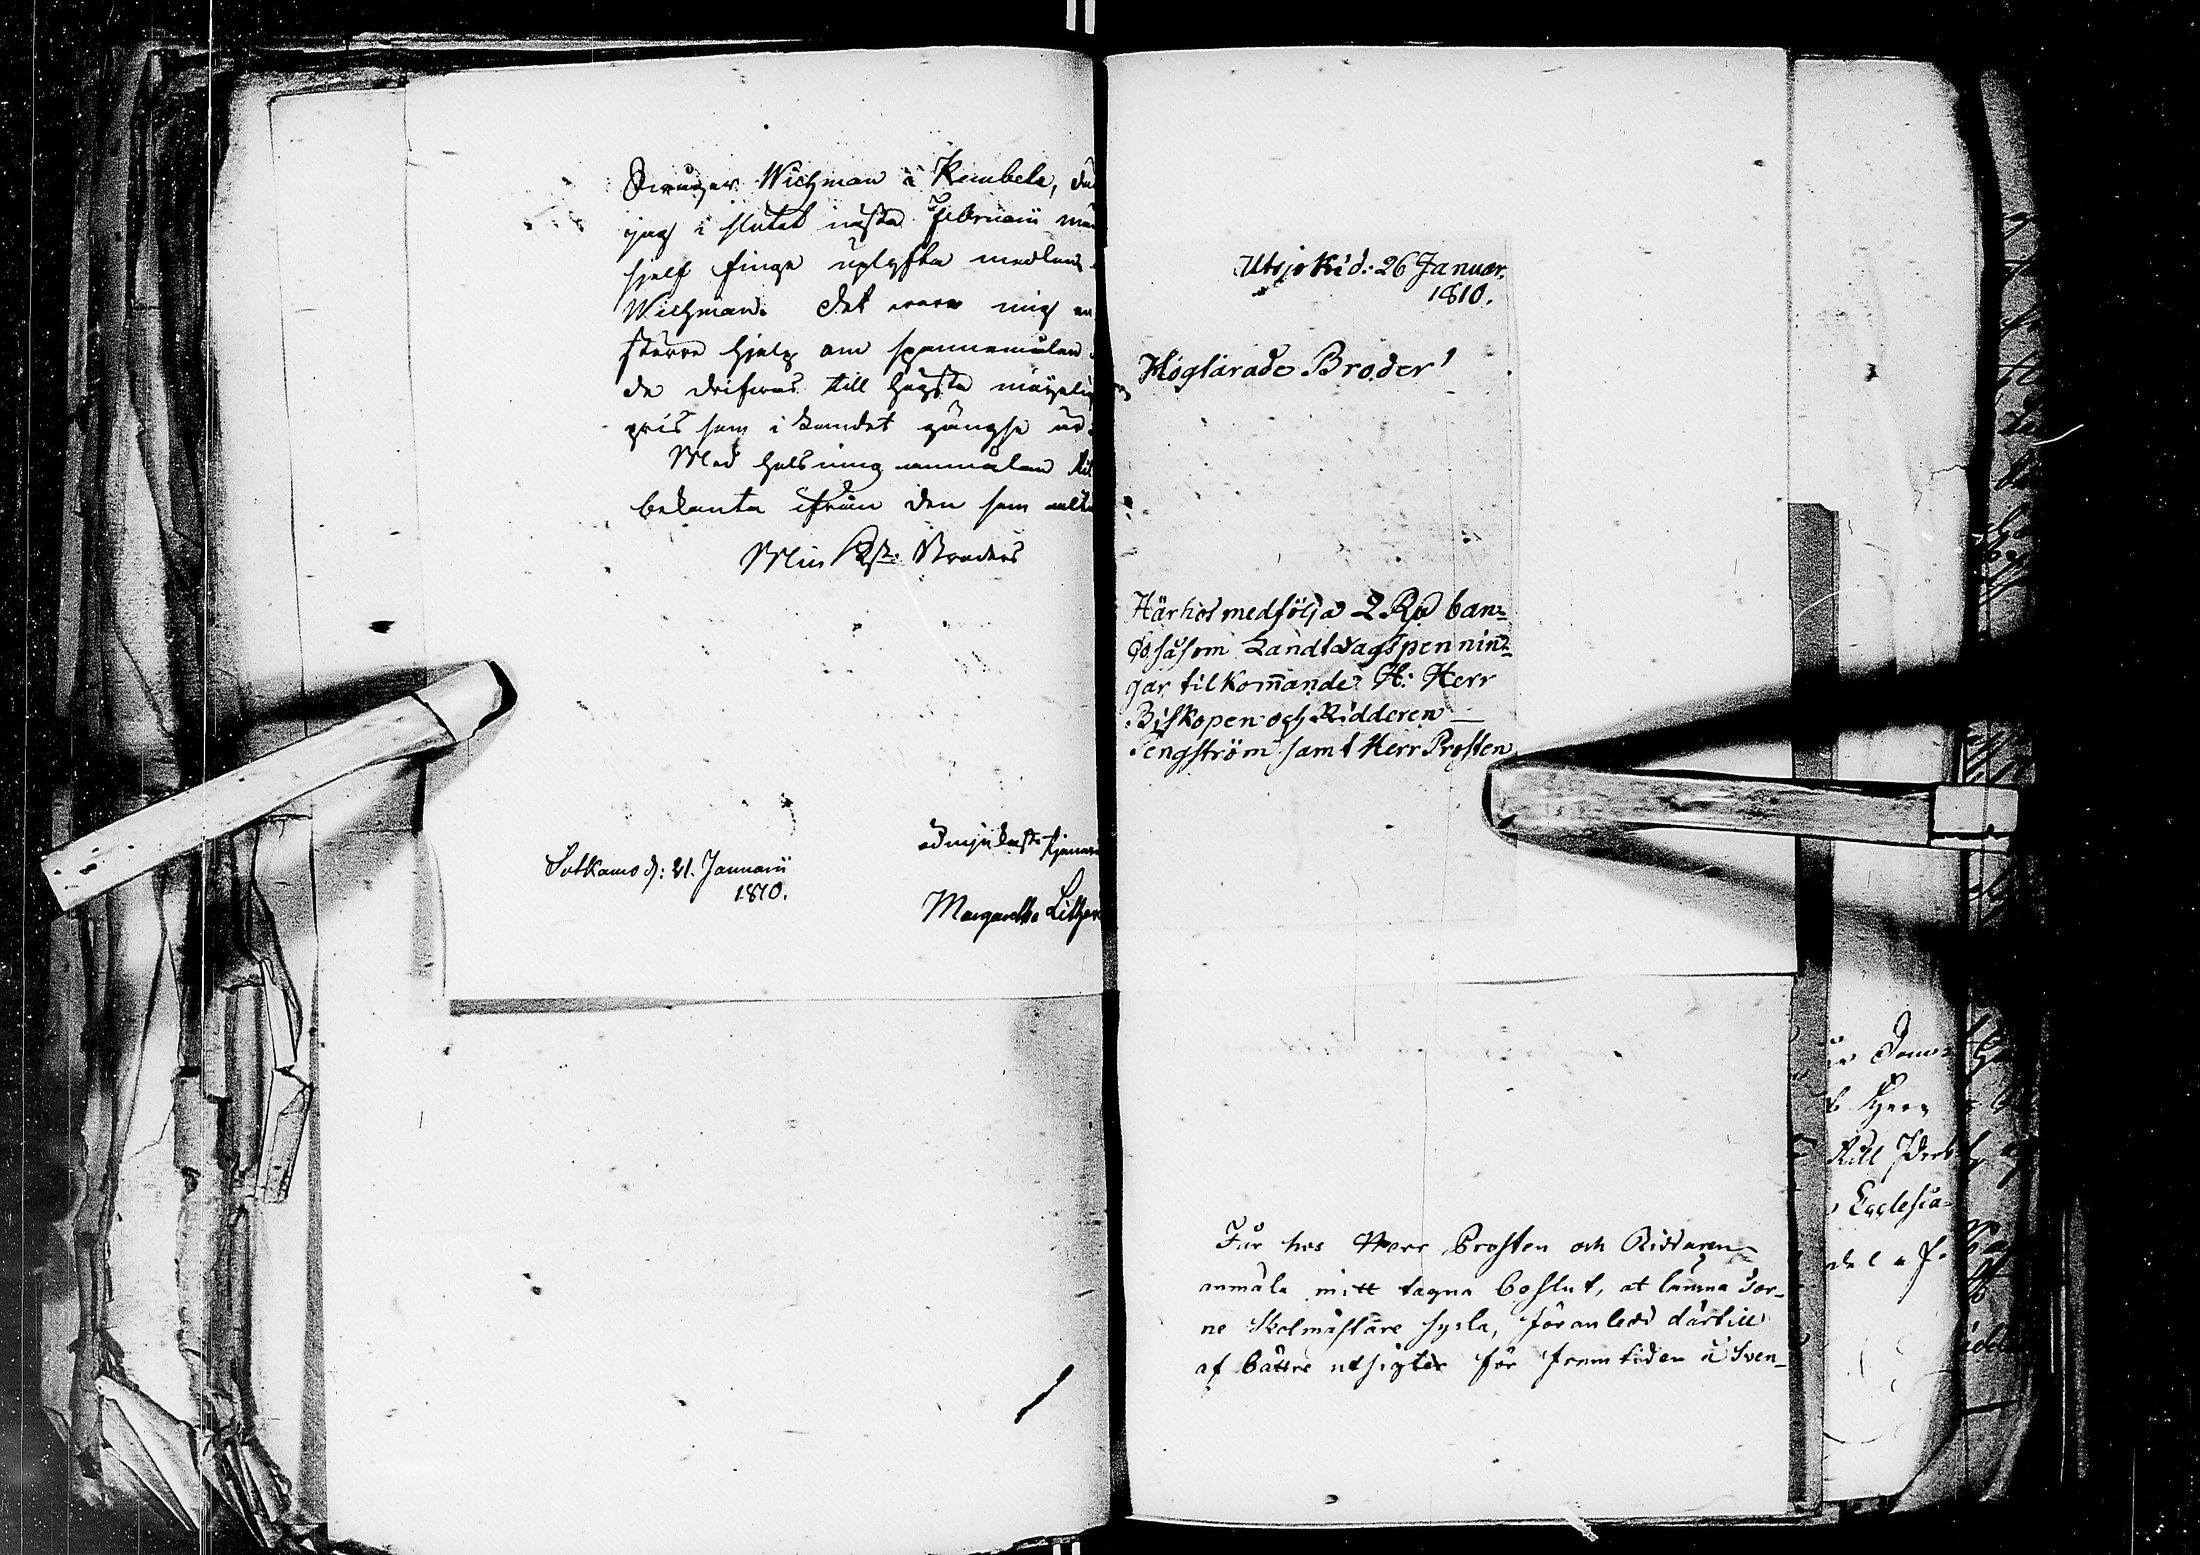 Swuger Wichman i Kembele, da
jag i slutet nästa Februarii må
sjelf finge uplyfta medlen
Wichman. Det vore mig en
större hjelp om spannemålen
de drifwas till högsta möjelig
pris som i landet gängse är
Med helsning anmälan til
bekanta ifrån den som alltid
Min Kst: Broders
ödmjukaste tjenare
Sotkamo d: 21. Januarii
1810.
Margaretha Lither
Utsjoki d: 26 Januar.
1810.
Höglärade Broder!
Här hos medfölja 2 Rd ban=
co såsom Landtdagspennin=
gar tilkommande H: Herr
Biskopen och Ridderen
Tengström samt Herr Prosten
Får hos Herr Prosten och Riddaren
anmäla mitt tagna beslut, at lämna Tor-
ne Skolmästare sysla, föranledd därtill
af bättre utsigter för framtiden i Sven-
Ecclesia-